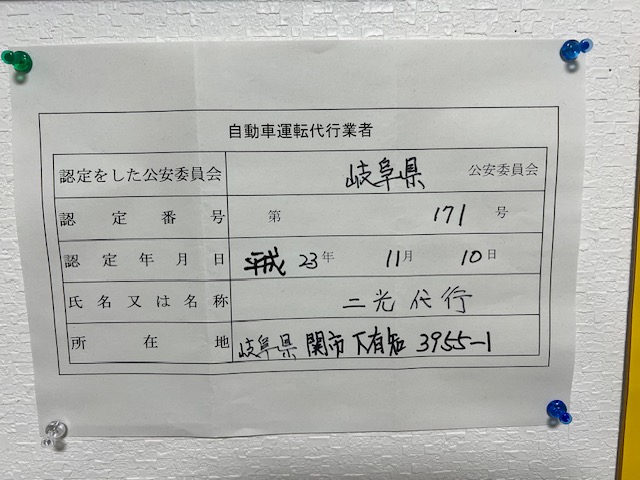 自動車運転代行業者
認定をした公安委員会 岐阜県 公安委員会
認定番号 第 171 号
認定年月日 平成 23年 11月 10日
氏名又は名称 二光代行
所在地 岐阜県関市下有知3955-1